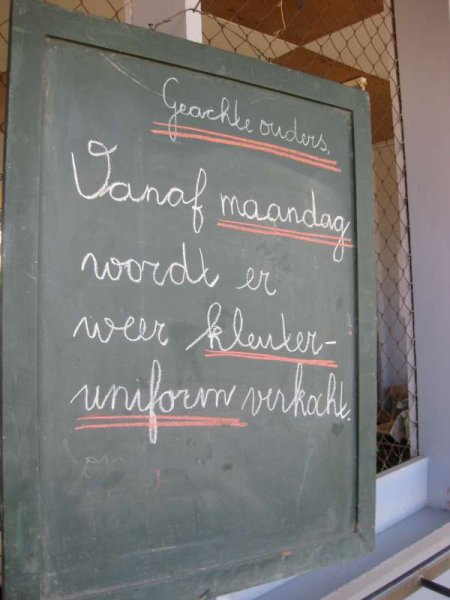 Geachte ouders,
Vanaf maandag
wordt er
weer kleuter-
uniform verkocht.